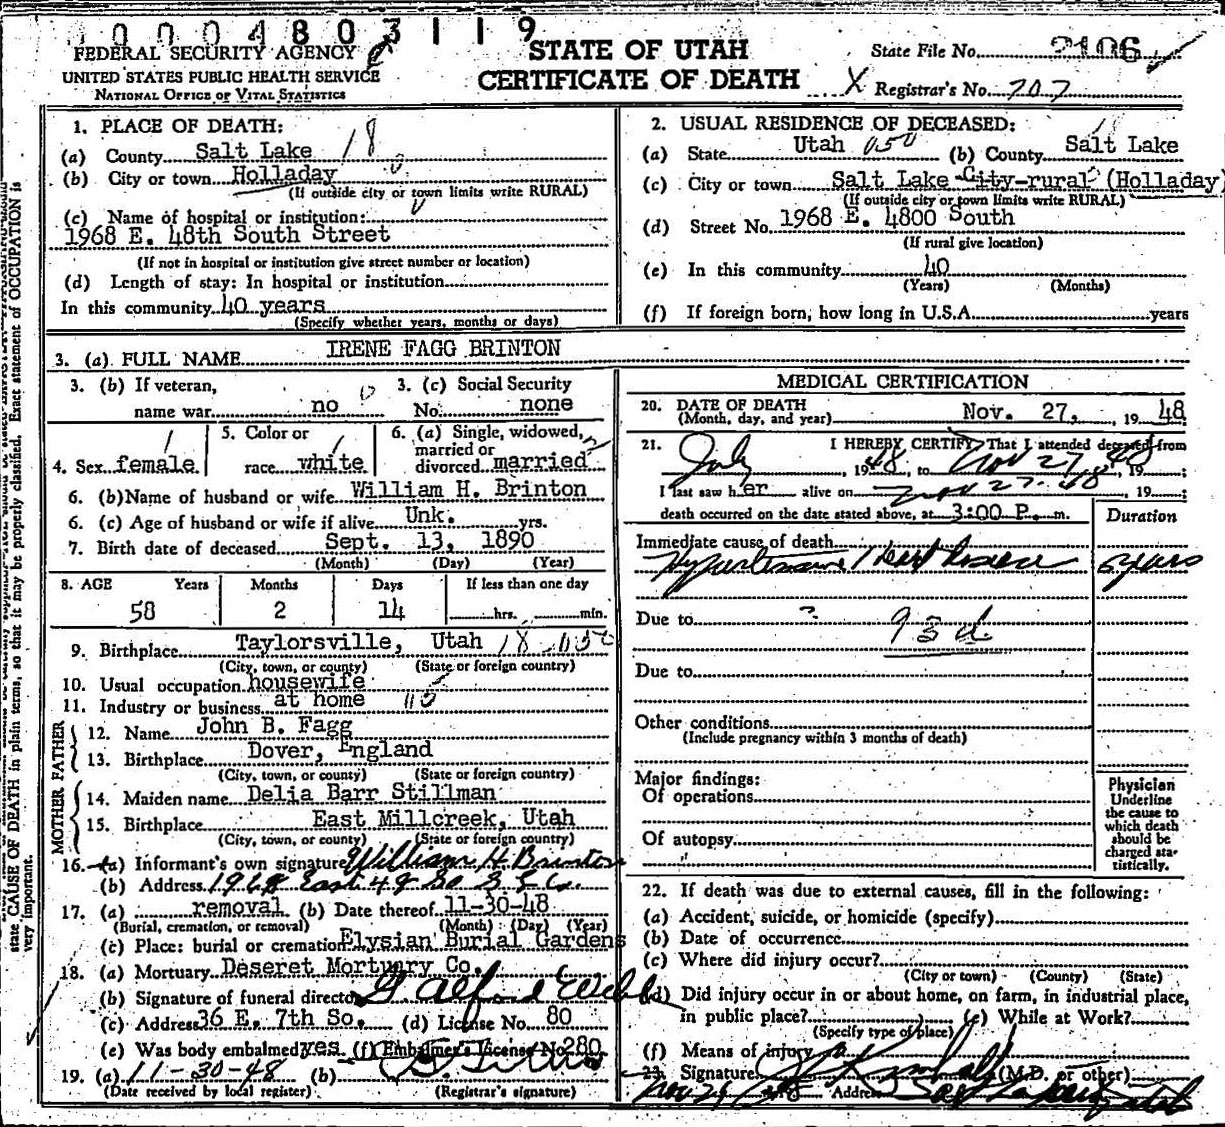 0004803119
FEDERAL SECURITY AGENCY
UNITED STATES PUBLIC HEALTH SERVICE
NATIONAL OFFICE OF VITAL STATISTICS
STATE OF UTAH
CERTIFICATE OF DEATH
State File No. 2106
X Registrar's No. 707
1. PLACE OF DEATH:
(a) County Salt Lake 18
(b) City or town Holladay
(If outside city or town limits write RURAL)
(c) Name of hospital or institution:
1968 E. 48th South Street
(If not in hospital or institution give street number or location)
(d) Length of stay: In hospital or institution
In this community 40 years
(Specify whether years, months or days)
2. USUAL RESIDENCE OF DECEASED:
(a) State Utah 050 (b) County Salt Lake
(c) City or town Salt Lake City-rural (Holladay)
(If outside city or town limits write RURAL)
(d) Street No. 1968 E. 4800 South
(If rural give location)
(e) In this community 40
(Years) (Months)
(f) If foreign born, how long in U.S.A. years
3. (a) FULL NAME IRENE FAGG BRINTON
3. (b) If veteran,
name war no
3. (c) Social Security
No. none
4. Sex female
5. Color or
race white
6. (a) Single, widowed,
married or
divorced married
6. (b) Name of husband or wife William H. Brinton
6. (c) Age of husband or wife if alive Unk. yrs.
7. Birth date of deceased Sept. 13, 1890
(Month) (Day) (Year)
8. AGE Years Months Days If less than one day
58 2 14 hrs. min.
9. Birthplace Taylorsville, Utah 18 050
(City, town, or county) (State or foreign country)
10. Usual occupation housewife
11. Industry or business at home
FATHER
12. Name John B. Fagg
13. Birthplace Dover, England
(City, town, or county) (State or foreign country)
MOTHER
14. Maiden name Delia Barr Stillman
15. Birthplace East Millcreek, Utah
(City, town, or county) (State or foreign country)
16. (a) Informant's own signature William H Brinton
(b) Address 1968 East 48 So S L Co.
17. (a) removal (b) Date thereof 11-30-48
(Burial, cremation, or removal) (Month) (Day) (Year)
(c) Place: burial or cremation Elysian Burial Gardens
18. (a) Mortuary Deseret Mortuary Co.
(b) Signature of funeral director
(c) Address 36 E. 7th So. (d) License No. 80
(e) Was body embalmed yes (f) Embalmer's License No. 280
19. (a) 11-30-48 (b)
(Date received by local register) (Registrar's signature)
MEDICAL CERTIFICATION
20. DATE OF DEATH
(Month, day, and year) Nov. 27, 1948
21. I HEREBY CERTIFY That I attended deceased from
July 1948, to Nov 27, 48 19 ;
I last saw her alive on Nov 27-48, 19 ;
death occurred on the date stated above, at 3:00 P. m.
Duration
Immediate cause of death
Hypertensive Heart Disease years
Due to ? 93d
Due to
Other conditions
(Include pregnancy within 3 months of death)
Major findings:
Of operations
Of autopsy
Physician
Underline
the cause to
which death
should be
charged sta-
tistically.
22. If death was due to external causes, fill in the following:
(a) Accident, suicide, or homicide (specify)
(b) Date of occurrence
(c) Where did injury occur?
(City or town) (County) (State)
(d) Did injury occur in or about home, on farm, in industrial place,
in public place? (e) While at Work?
(Specify type of place)
(f) Means of injury
23. Signature (M.D. or other)
Address
state CAUSE OF DEATH in plain terms, so that it may be properly classified. Exact statement of OCCUPATION is
very important.